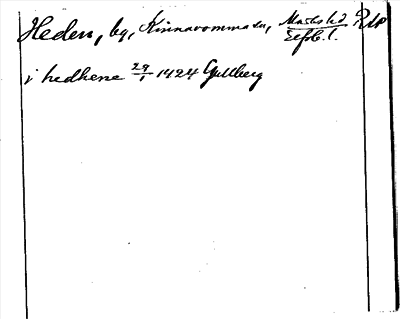 Heden, bg, Kinnarumma sn, Marks hd
Elfsb. l.
i hedhene 29/1 1424 Gullberg